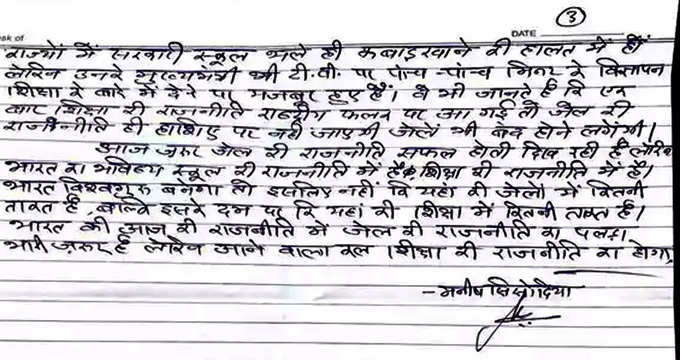 sk of
DATE
3
राज्यों में सरकारी स्कूल भले ही कबाड़खाने की हालत में हों
लेकिन उनके मुख्यमंत्री भी टी.वी. पर पांच-पांच मिनट के विज्ञापन
शिक्षा के बारे में देने पर मजबूर हुए हैं। वे भी जानते हैं कि एक
बार शिक्षा की राजनीति राष्ट्रीय फलक पर आ गई तो जेल की
राजनीति ही हाशिए पर नहीं जाएगी जेलें भी बंद होने लगेंगी।
आज जरूर जेल की राजनीति सफल होती दिख रही है लेकिन
भारत का भविष्य स्कूल की राजनीति में है, शिक्षा की राजनीति में है।
भारत विश्वगुरू बनेगा तो इसलिए नहीं कि यहां की जेलों में कितनी
ताकत है, बल्कि इसके दम पर कि यहां की शिक्षा में कितनी ताकत है।
भारत की आज की राजनीति में जेल की राजनीति का पलड़ा
भारी ज़रूर है लेकिन आने वाला कल शिक्षा की राजनीति का होगा,
- मनीष सिसोदिया